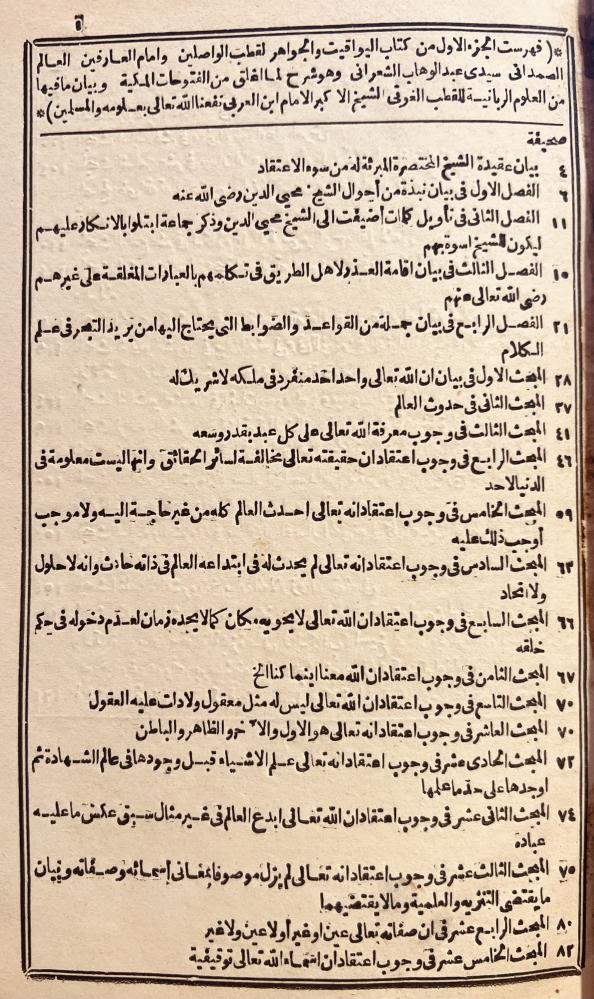 *(فهرست الجزء الاول من كتاب اليواقيت والجواهر لقطب الواصلين وامام العارفين العالم
الصمدانى سيدى عبد الوهاب الشعرانى وهو شرح لما انغلق من الفتوحات المكية وبيان ما فيها
من العلوم الربانية للقطب الغوثى الشيخ الاكبر الامام ابن العربى نفعنا الله تعالى بعلومه والمسلمين)*
صحيفة
٤ بيان عقيدة الشيخ المختصرة المبرئة له من سوء الاعتقاد
٦ الفصل الاول فى بيان نبذة من أحوال الشيخ محيى الدين رضى الله عنه
١١ الفصل الثانى فى تأويل كلمات أضيفت الى الشيخ محيى الدين وذكر جماعة ابتلوا بالانكار عليهم
ليكون للشيخ اسوة بهم
١٥ الفصل الثالث فى بيان اقامة العذر لاهل الطريق فى تكلمهم بالعبارات المغلقة على غيرهم
رضى الله تعالى عنهم
٢١ الفصل الرابع فى بيان جملة من القواعد والضوابط التى يحتاج اليها من يريد التبحر فى علم
الكلام
٢٨ المبحث الاول فى بيان ان الله تعالى واحد احد منفرد فى ملكه لا شريك له
٣٧ المبحث الثانى فى حدوث العالم
٤١ المبحث الثالث فى وجوب معرفة الله تعالى على كل عبد بقدر وسعه
٤٦ المبحث الرابع فى وجوب اعتقاد ان حقيقته تعالى مخالفة لسائر الحقائق وانها ليست معلومة فى
الدنيا لاحد
٥٩ المبحث الخامس فى وجوب اعتقاد انه تعالى احدث العالم كله من غير حاجة اليه ولا موجب
أوجب ذلك عليه
٦٣ المبحث السادس فى وجوب اعتقاد انه تعالى لم يحدث له فى ابتداعه العالم فى ذاته حادث وانه لا حلول
ولا اتحاد
٦٦ المبحث السابع فى وجوب اعتقاد ان الله تعالى لا يحويه مكان كما لا يحده زمان لعدم دخوله فى حكم
خلقه
٦٧ المبحث الثامن فى وجوب اعتقاد ان الله معنا اينما كنا الخ
٧٠ المبحث التاسع فى وجوب اعتقاد ان الله تعالى ليس له مثل معقول ولا دلت عليه العقول
٧٠ المبحث العاشر فى وجوب اعتقاد انه تعالى هو الاول والآخر والظاهر والباطن
٧٢ المبحث الحادى عشر فى وجوب اعتقاد انه تعالى علم الاشياء قبل وجودها فى عالم الشهادة ثم
اوجدها على حد ما علمها
٧٤ المبحث الثانى عشر فى وجوب اعتقاد ان الله تعالى ابدع العالم فى غير مثال سبق عكس ما عليه
عباده
٧٥ المبحث الثالث عشر فى وجوب اعتقاد انه تعالى لم يزل موصوفا بمعانى اسمائه وصفاته وبيان
ما يقتضى التنزيه والعلمية وما لا يقتضيهما
٨٠ المبحث الرابع عشر فى ان صفاته تعالى عين او غير أو لا عين ولا غير
٨٢ المبحث الخامس عشر فى وجوب اعتقاد ان اسماء الله تعالى توقيفية